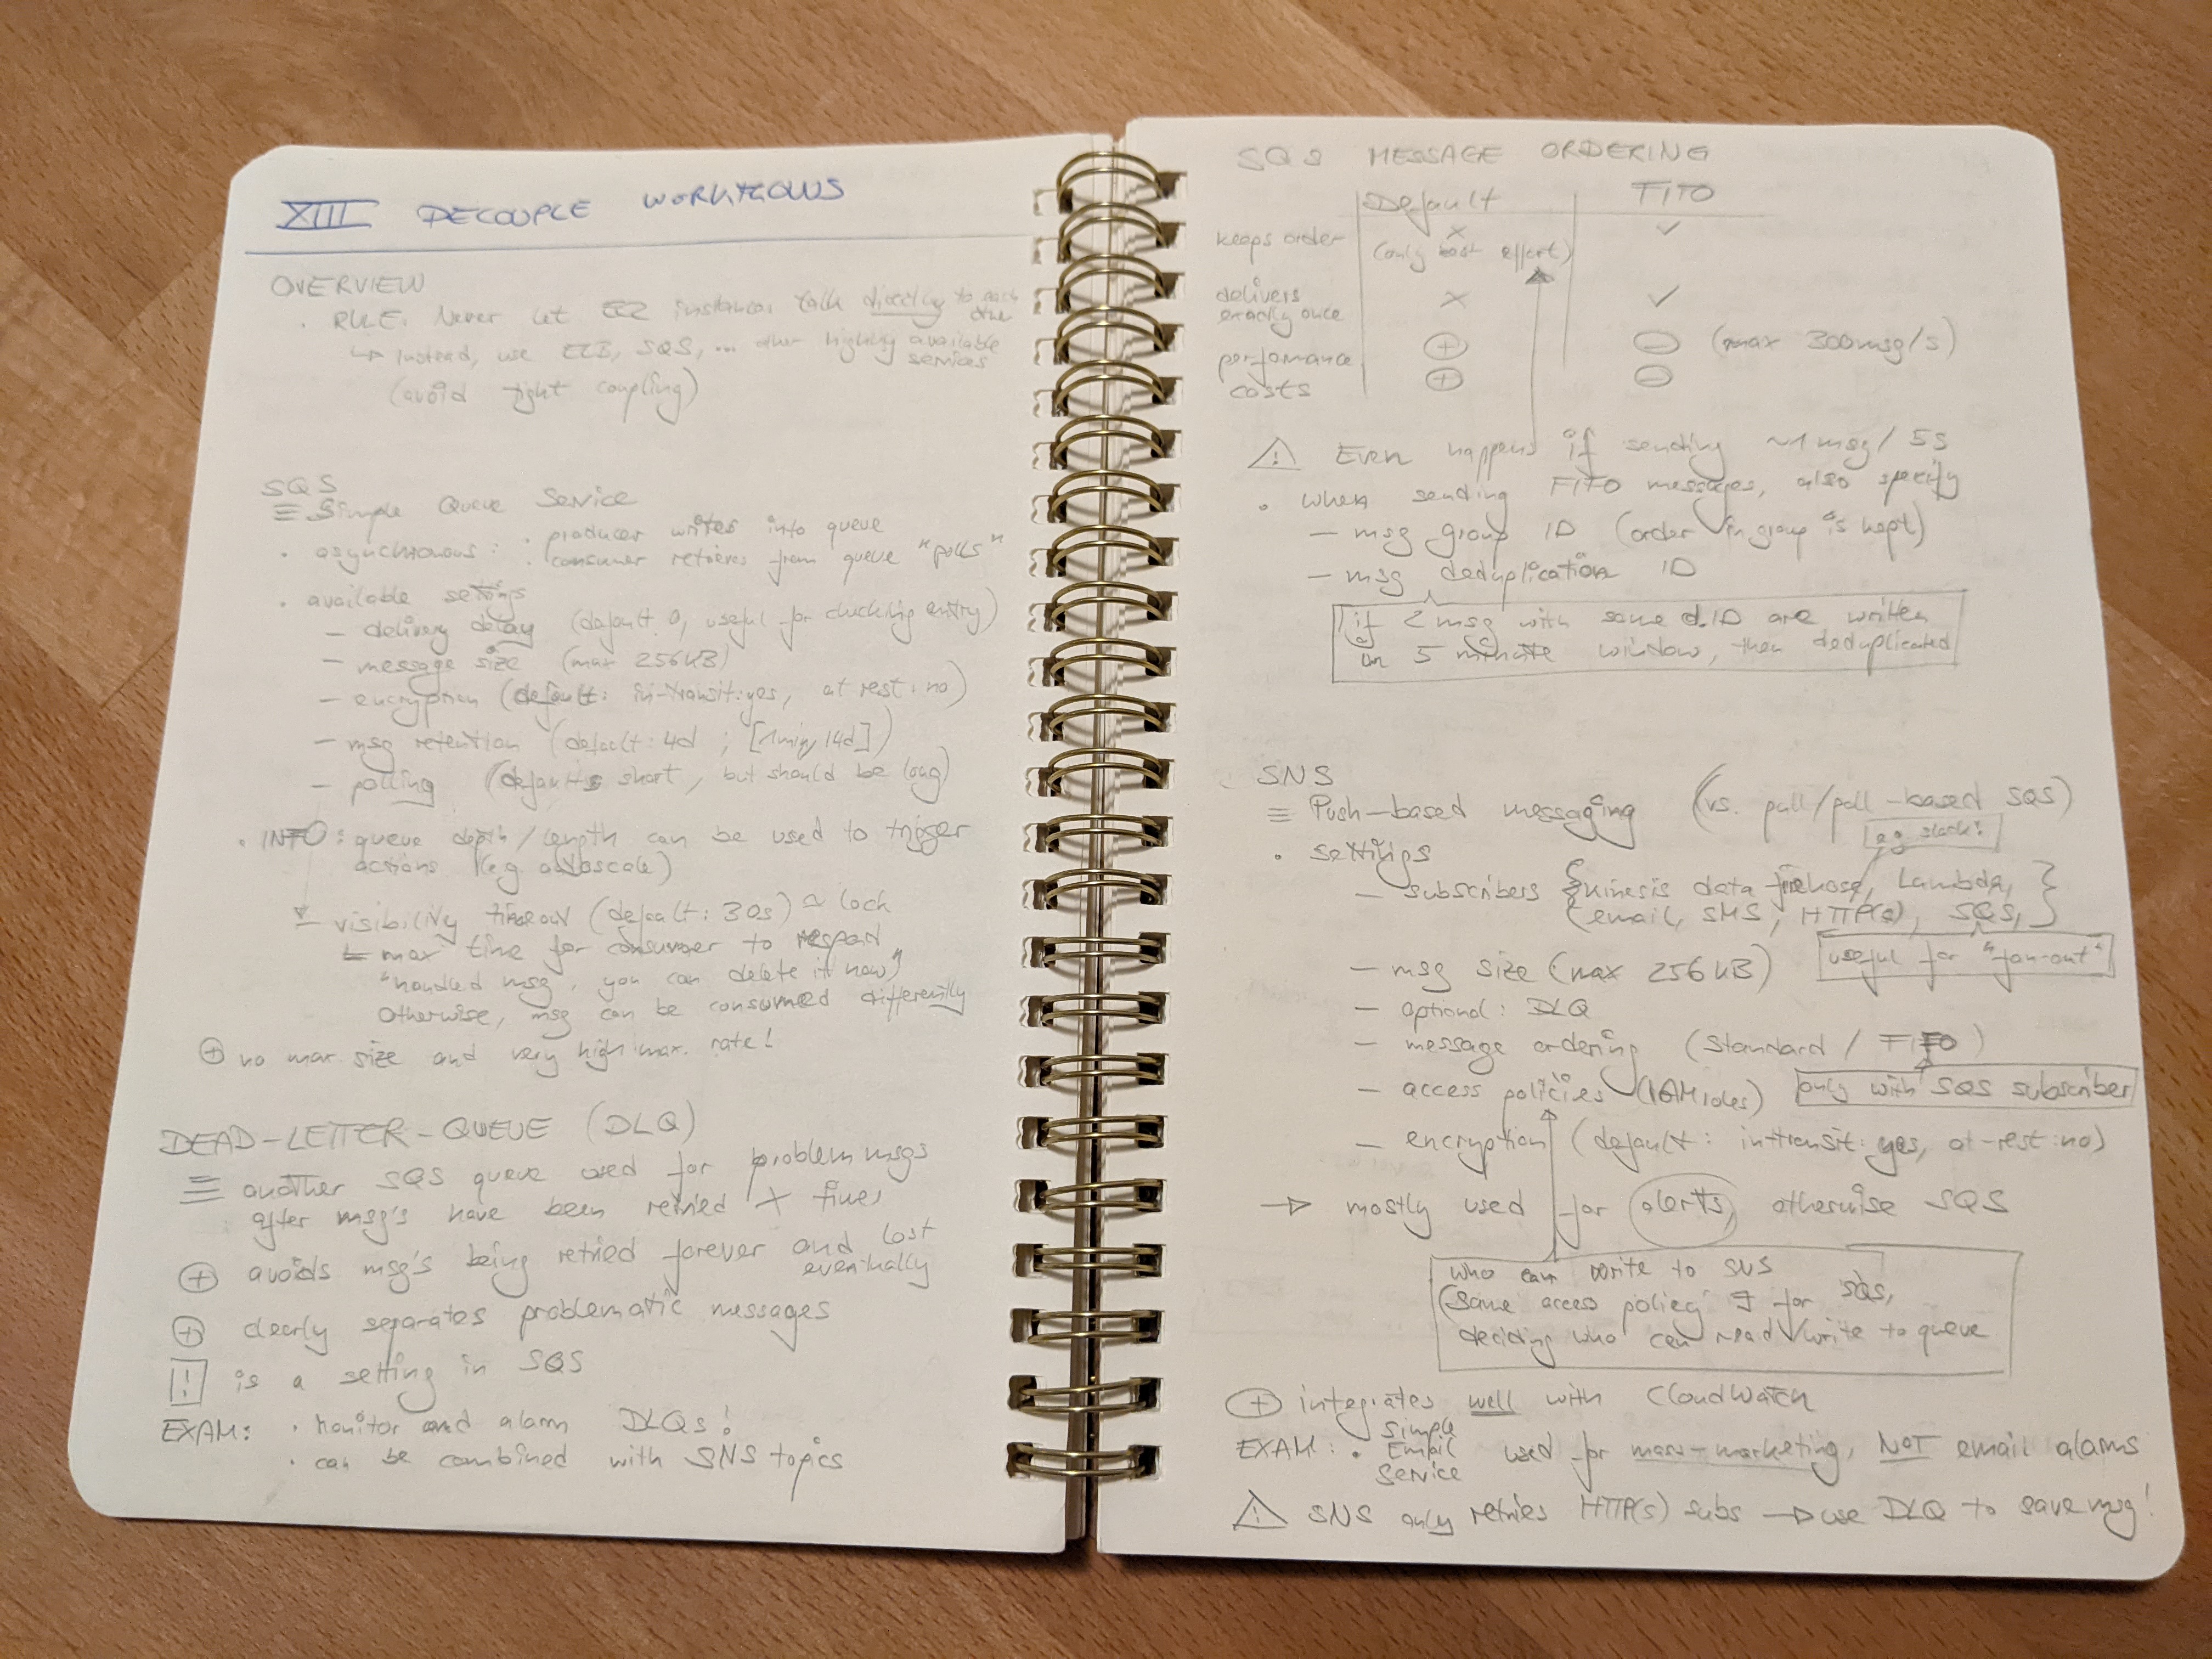 XIII DECOUPLE WORKFLOWS
OVERVIEW
· RULE: Never let EC2 instances talk directly to each other
↳ instead, use ELB, SQS, ... other highly available services
(avoid tight coupling)
SQS
≡ Simple Queue Service
· asynchronous: · producer writes into queue
· consumer retrieves from queue "polls"
· available settings
- delivery delay (default 0, useful for checking entry)
- message size (max 256kB)
- encryption (default: in-transit: yes, at rest: no)
- msg retention (default: 4d ; [1min, 14d])
- polling (default short, but should be long)
· INFO: queue depth/length can be used to trigger
actions (e.g. autoscale)
- visibility timeout (default: 30s) ≈ lock
↳ max time for consumer to respond
"handled msg, you can delete it now"
otherwise, msg can be consumed differently
⊕ no max. size and very high max. rate!
DEAD-LETTER-QUEUE (DLQ)
≡ another SQS queue used for problem msgs
after msg's have been retried X times
⊕ avoids msg's being retried forever and lost
eventually
⊕ clearly separates problematic messages
! is a setting in SQS
EXAM: · Monitor and alarm DLQs!
· can be combined with SNS topics
SQS MESSAGE ORDERING
Default FIFO
keeps order × (only best effort) ✓
delivers exactly once × ✓
perfomance ⊕ ⊖ (max 300msg/s)
costs ⊕ ⊖
⚠ Even happens if sending ~1msg/5s
· when sending FIFO messages, also specify
- msg group ID (order in group is kept)
- msg deduplication ID
if 2 msg with same d.ID are written
in 5 minute window, then deduplicated
SNS
≡ Push-based messaging (vs. pull/poll-based SQS)
· settings
e.g. slack!
- subscribers {kinesis data firehose, Lambda,
email, SMS, HTTP(s), SQS,}
- msg size (max 256kB)
useful for "fan-out"
- optional: DLQ
- message ordering (Standard / FIFO)
- access policies (IAM roles)
only with SQS subscriber
- encryption (default: in-transit: yes, at-rest: no)
→ mostly used for alerts, otherwise SQS
who can write to SNS
(same access policy ∃ for SQS,
deciding who can read/write to queue
⊕ integrates well with CloudWatch
EXAM: · Simple Email Service used for mass-marketing, NOT email alarms
⚠ SNS only retries HTTP(s) subs → use DLQ to save msg!